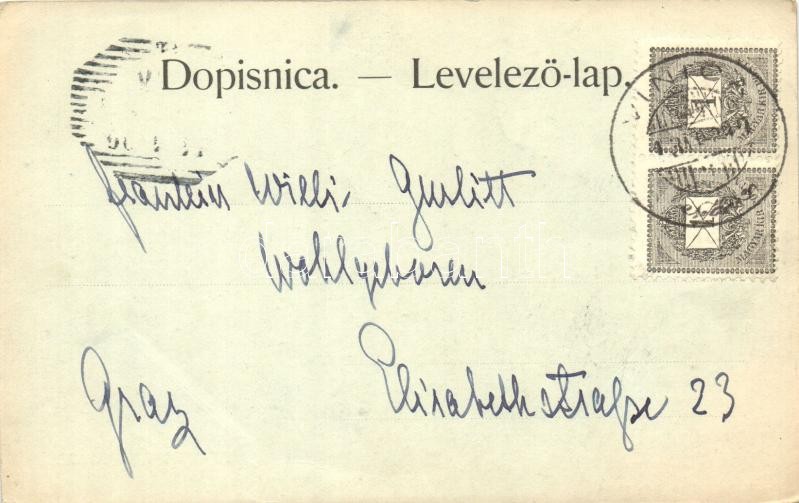 Dopisnica. — Levelező-lap.
1
MAGYAR KIR
1
Fräulein Willi Gurlitt
Wohlgeboren
Graz
Elisabethstraße 23